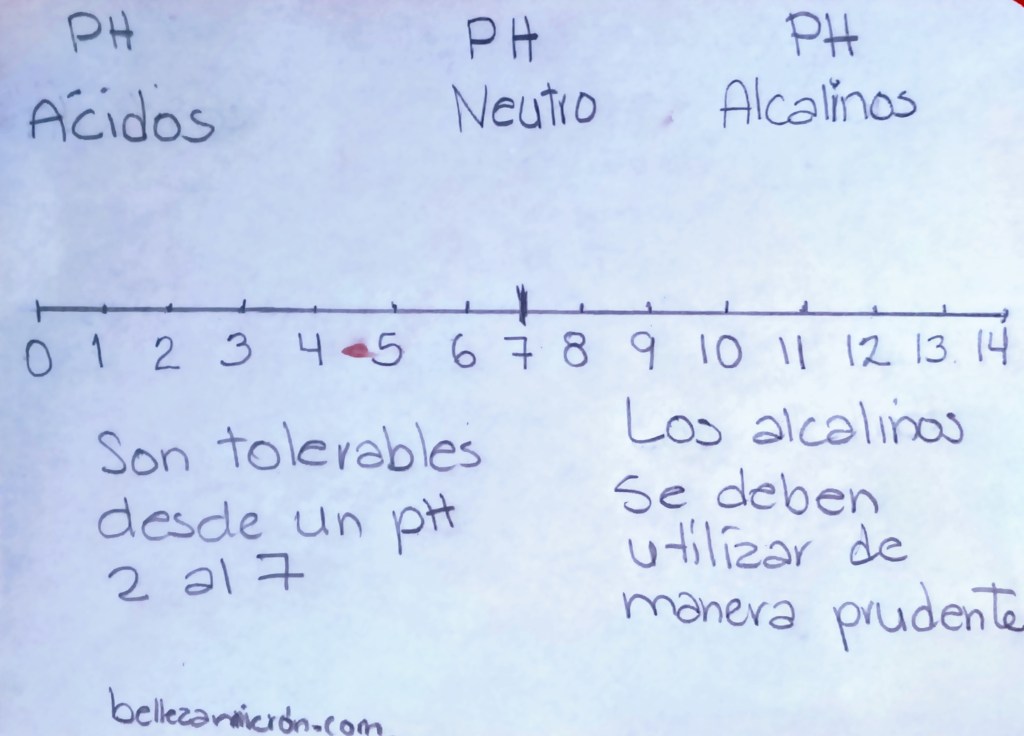 PH PH PH
Ácidos Neutro Alcalinos
0 1 2 3 4 5 6 7 8 9 10 11 12 13 14
Son tolerables
desde un pH
2 al 7
Los alcalinos
se deben
utilizar de
manera prudente